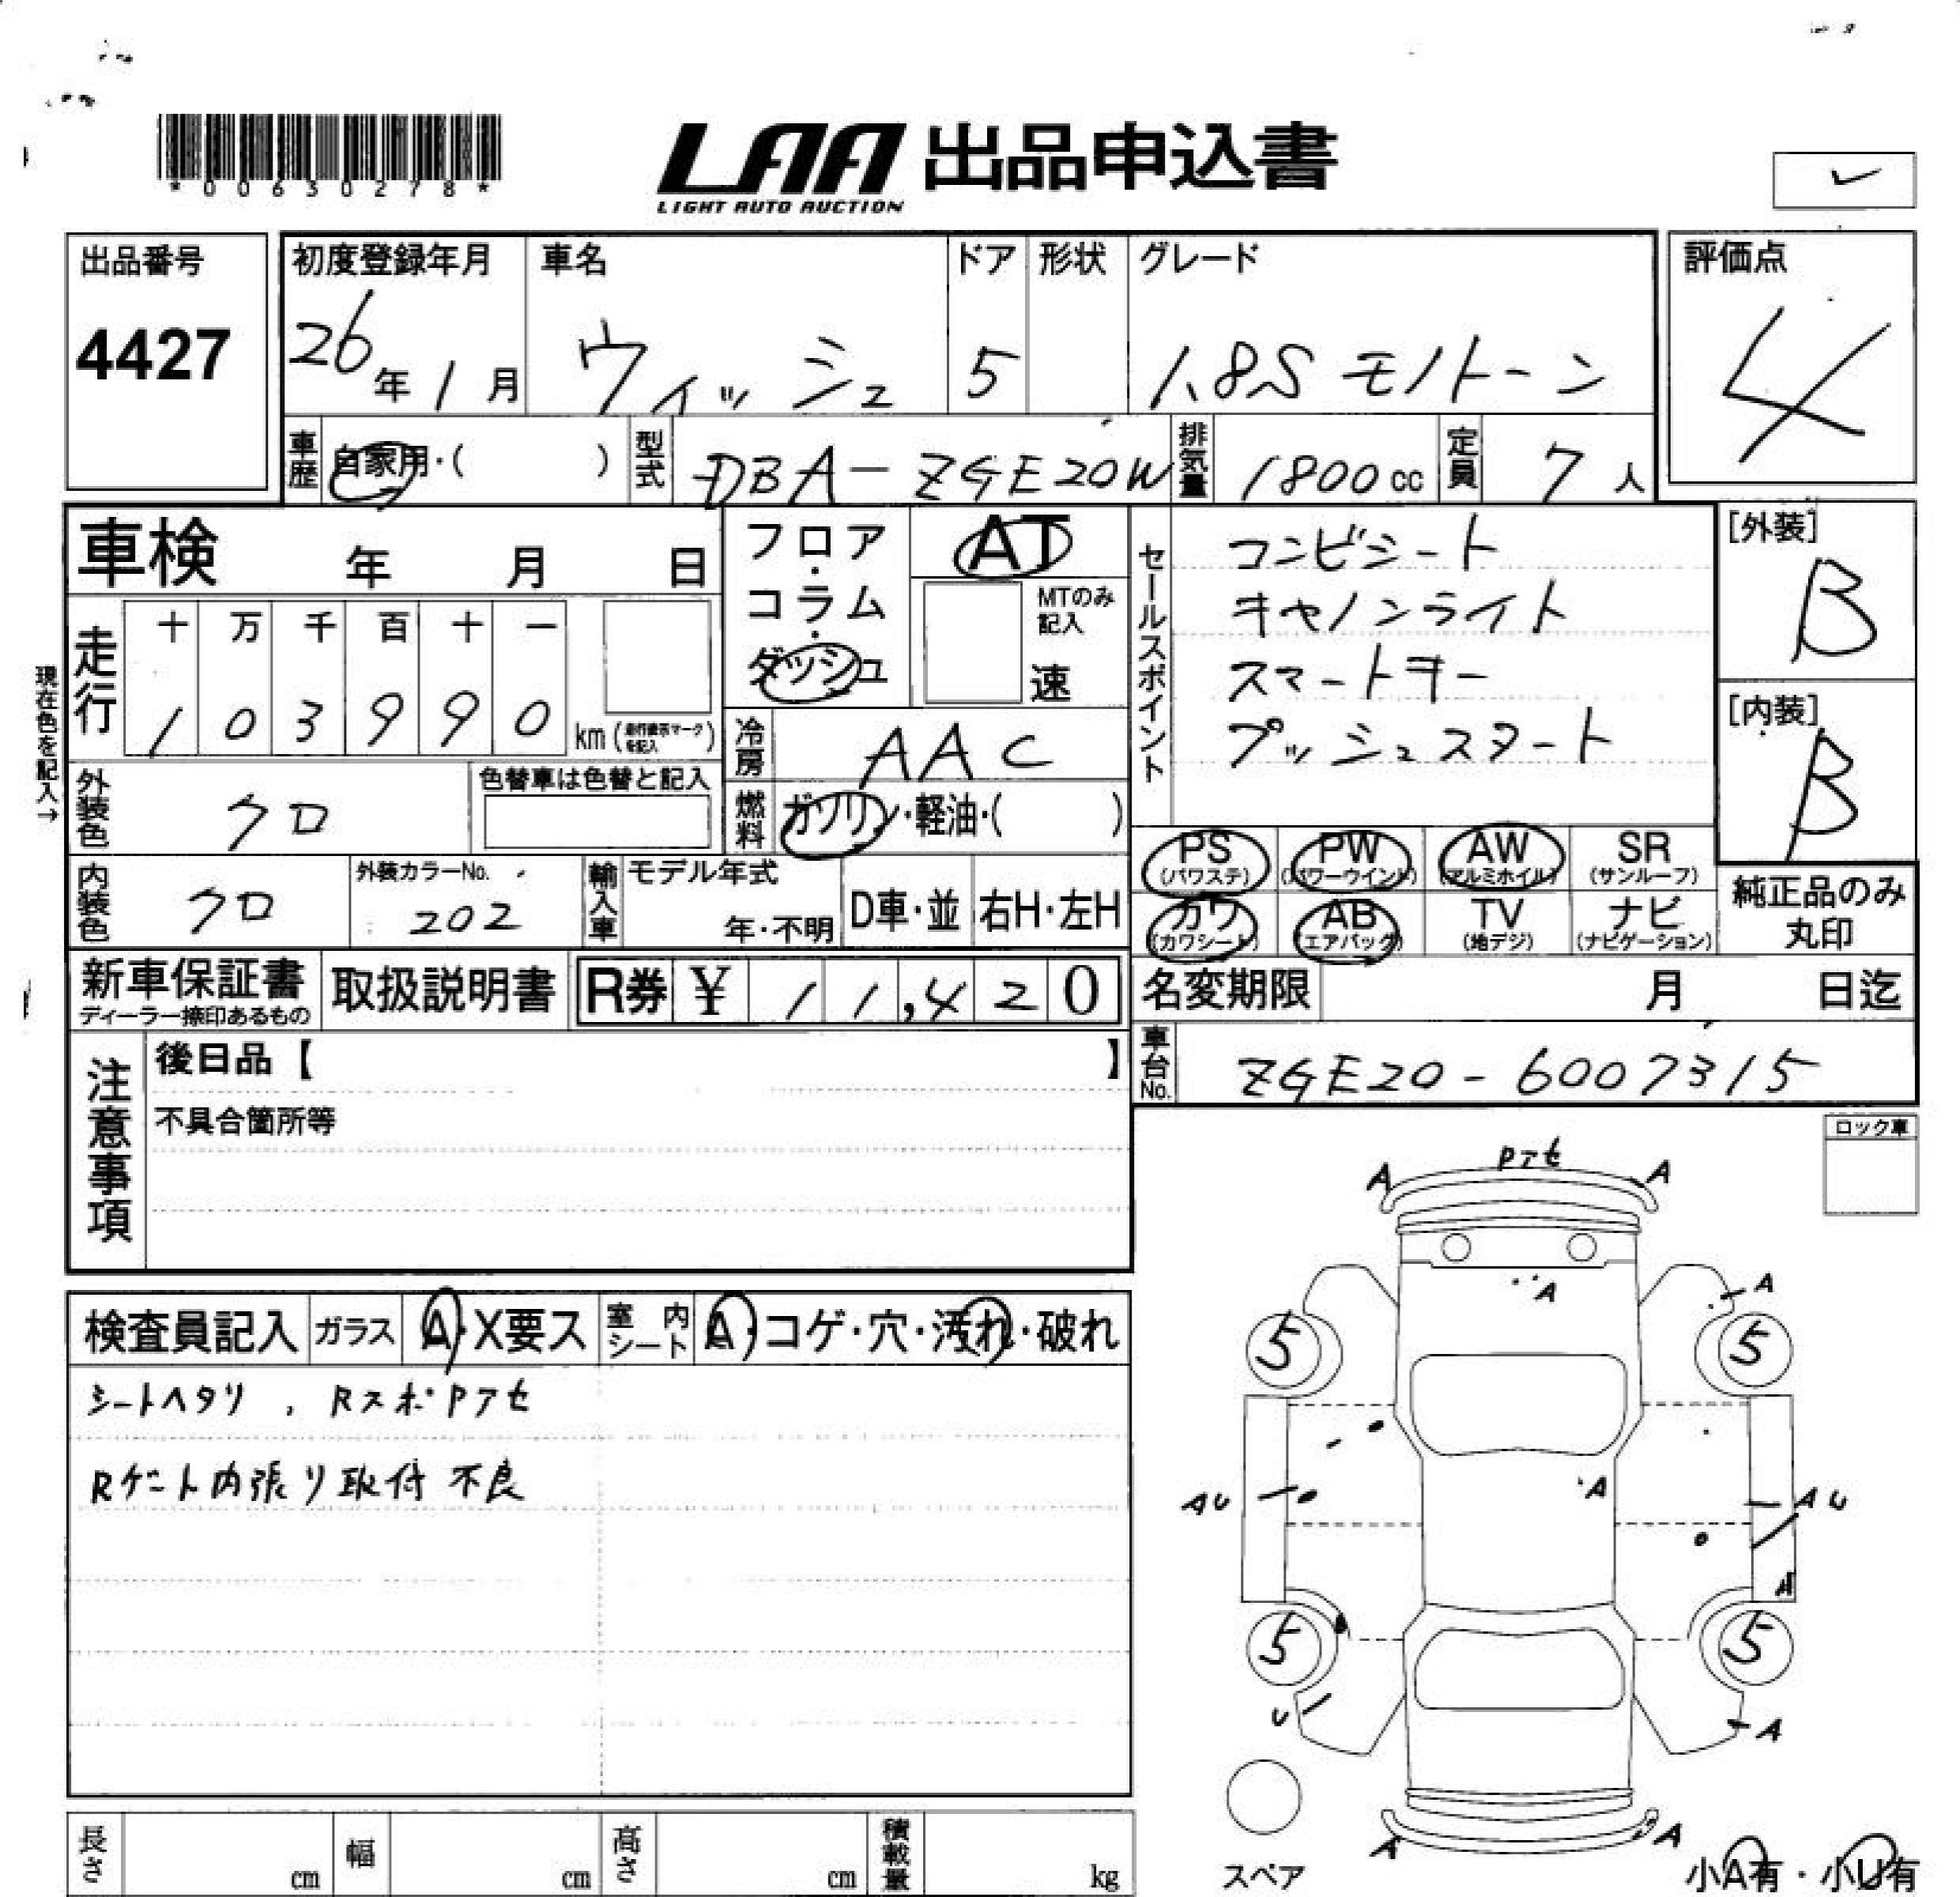 *00630278*
LAA 出品申込書
LIGHT AUTO AUCTION
出品番号
4427
初度登録年月
26年1月
車名
ウィッシュ
ドア
5
形状
グレード
1.8S モノトーン
評価点
4
車歴
自家用・( )
型式
DBA-ZGE20W
排気量
1800cc
定員
7人
車検 年 月 日
フロア・コラム・ダッシュ
AT
MTのみ記入
速
セールスポイント
コンビシート
キャノンライト
スマートキー
プッシュスタート
[外装]
B
[内装]
B
現在色を記入→
走行
十 万 千 百 十 一
1 0 3 9 9 0
km(走行表示マークを記入)
冷房
AAC
燃料
ガソリン・軽油・( )
外装色
クロ
色替車は色替と記入
内装色
クロ
外装カラーNo.
202
輸入車
モデル年式
年・不明
D車・並
右H・左H
PS
(パワステ)
PW
(パワーウインド)
AW
(アルミホイル)
SR
(サンルーフ)
カワ
(カワシート)
AB
(エアバッグ)
TV
(地デジ)
ナビ
(ナビゲーション)
純正品のみ
丸印
新車保証書
ディーラー捺印あるもの
取扱説明書
R券 ¥ 11,420
名変期限 月 日迄
車台No.
ZGE20-6007315
注意事項
後日品【 】
不具合箇所等
ロック車
検査員記入
ガラス
A・X要ス
室内シート
A・コゲ・穴・汚れ・破れ
シートヘタリ, RスポPアセ
Rゲート内張り取付不良
Pアセ
A
A
A
A
5
5
A
AU
AU
A
5
5
U
A
A
A
スペア
小A有・小U有
長さ cm
幅 cm
高さ cm
積載量 kg